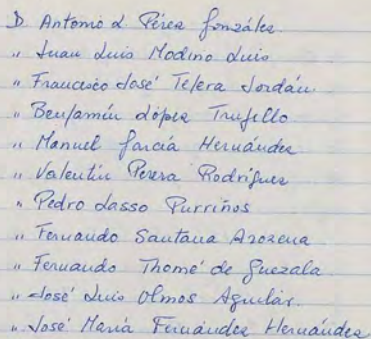 D. Antonio L. Pérez González.
" Juan Luis Modino Luis
" Francisco José Telera Jordán.
" Benjamín López Trujillo
" Manuel García Hernández
" Valentín Perera Rodríguez
" Pedro Lasso Purriños
" Fernando Santana Arozena
" Fernando Thomé de Guezala
" José Luis Olmos Aguilar.
" José María Fernández Hernández